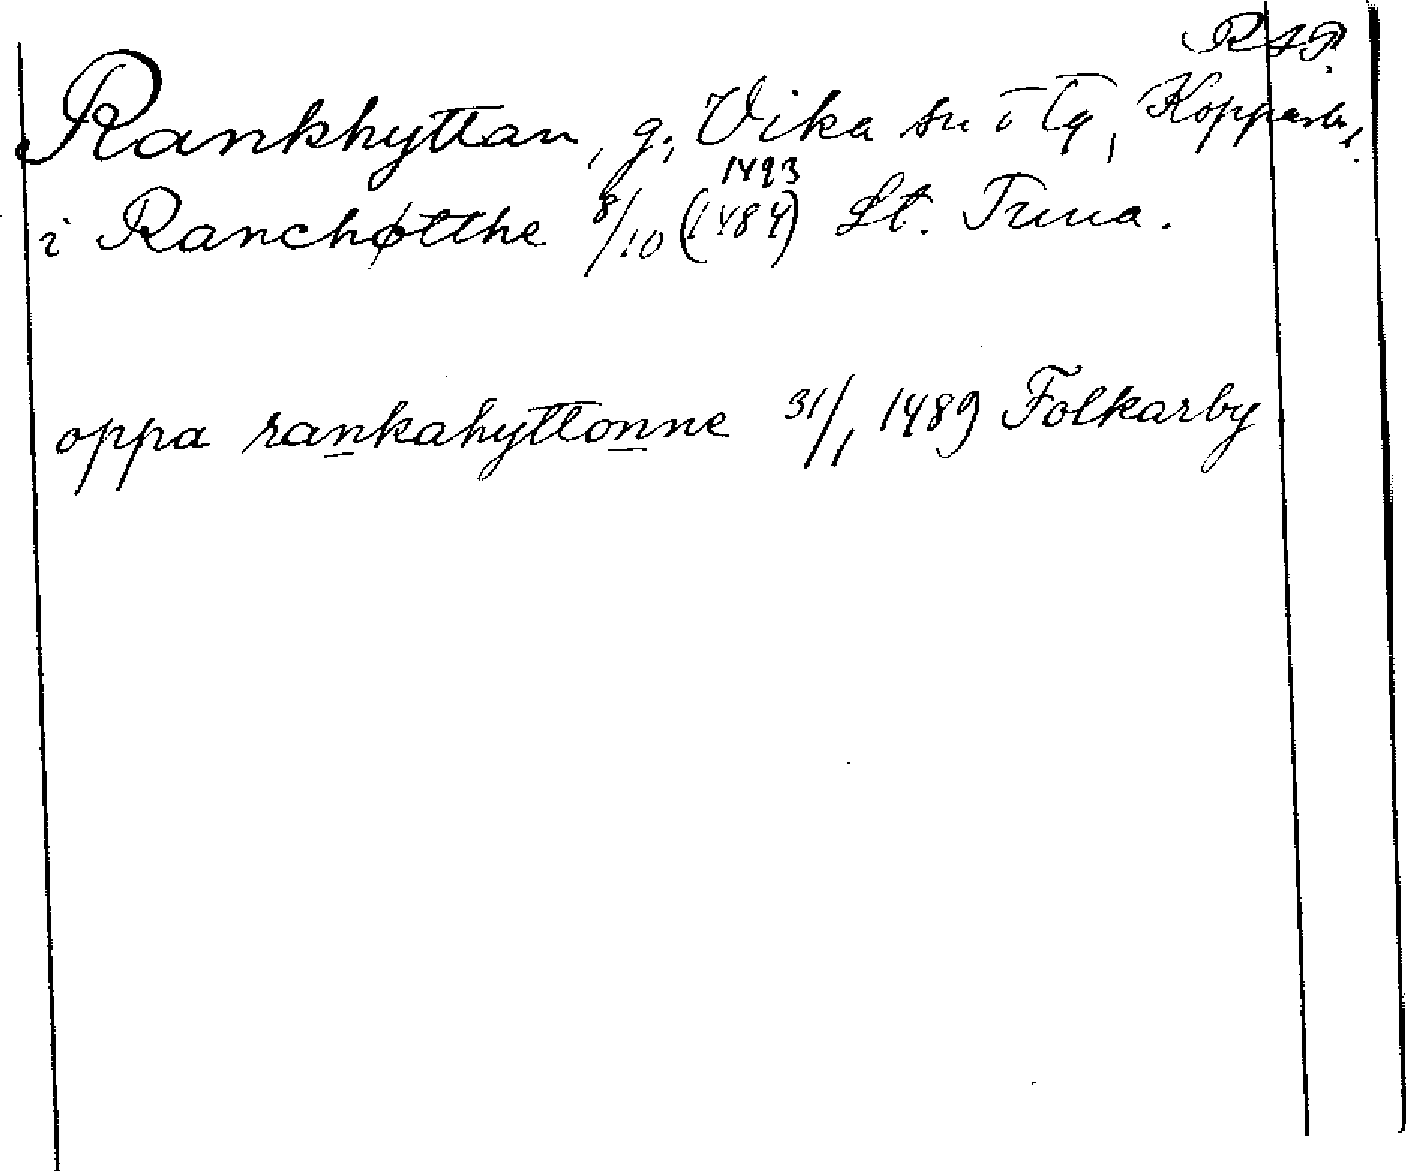 RAP.
Rankhyttan, g., Vika sn o tg, Kopparb. l.
1493
i Ranchøtthe 8/10 (1484) St. Tuna.
oppa rankahyttonne 31/1 1489 Folkarby